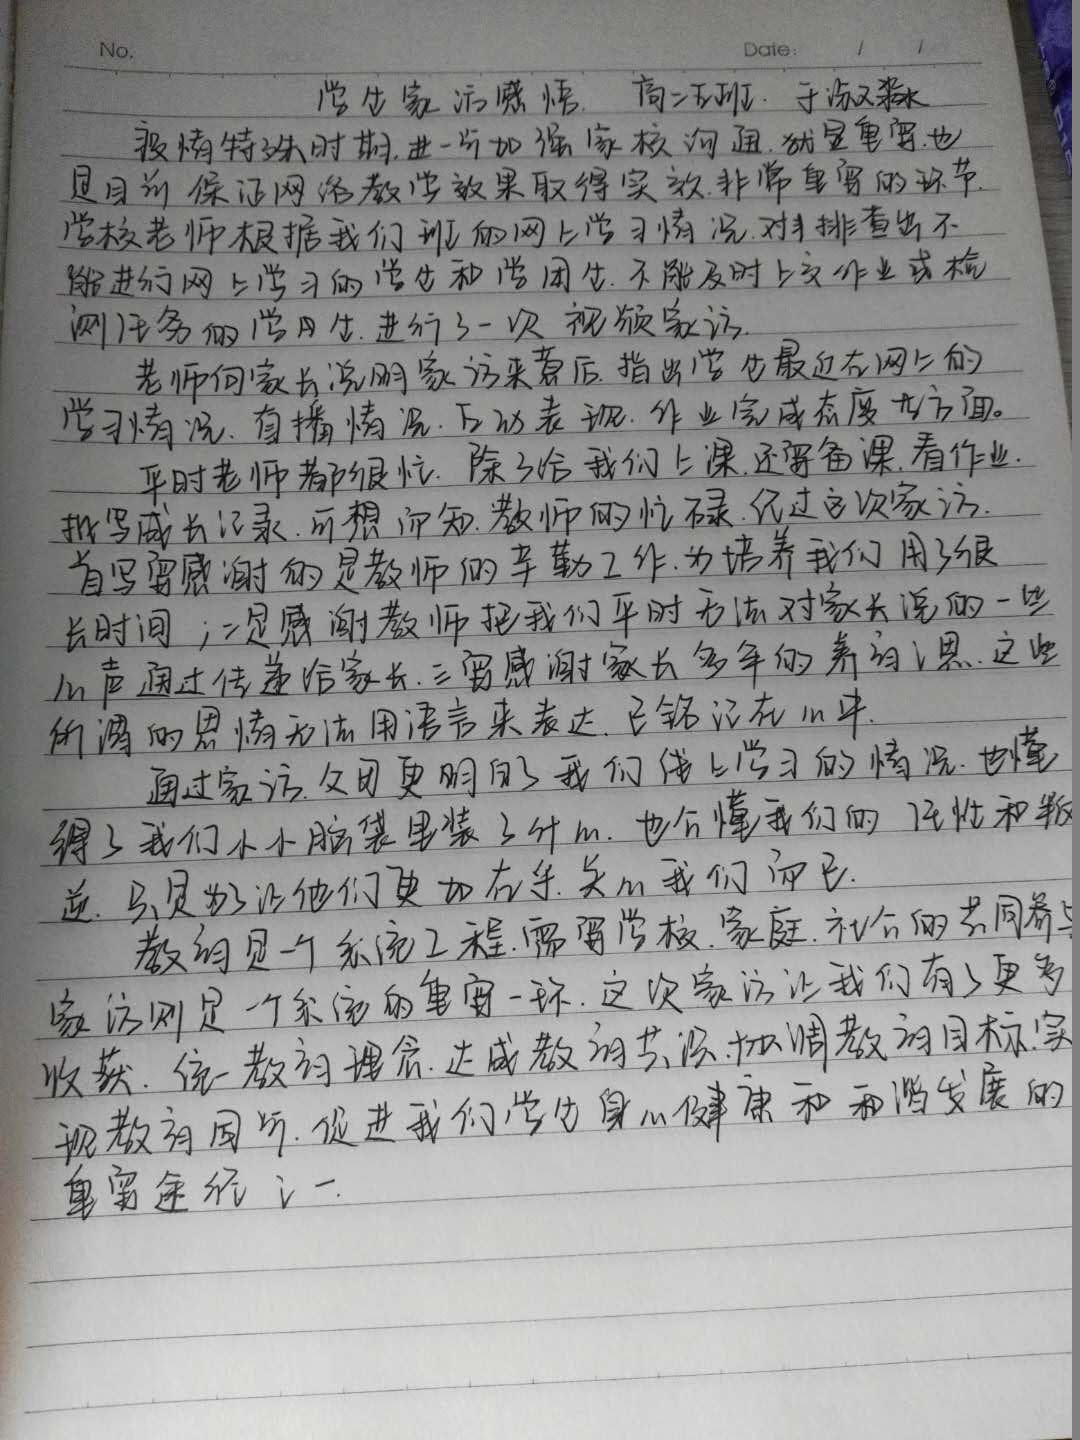 No. Date: / /
学生家访感悟. 高二五班. 于淑
疫情特殊时期,进一步加强家校沟通,就显重要,也
是目前保证网络教学效果取得实效,非常重要的环节.
学校老师根据我们班的网上学习情况.对于排查出不
能进行网上学习的学生和学困生.不能及时上交作业或检
测任务的学生.进行了一次视频家访.
老师向家长说明家访来意后.指出学生最近在网上的
学习情况.直播情况.互动表现.作业完成态度方面。
平时老师都很忙.除了给我们上课.还要备课.看作业.
批写成长记录.可想而知.教师的忙碌.经过这次家访.
首写要感谢的是教师的辛勤工作.为培养我们用了很
长时间;二是感谢教师把我们平时无法对家长说的一些
心声通过传递给家长.三要感谢家长多年的养育之恩.这些
所谓的恩情无法用语言来表达.已铭记在心中.
通过家访.父母更明白了我们线上学习的情况.也懂
得了我们小小脑袋里装了什么.也会懂我们的任性和叛
逆.只是为了让他们更加在乎.关心我们而已.
教育是一个系统工程.需要学校.家庭.社会的共同参与
家访则是一个系统的重要一环.这次家访让我们有了更多
收获.统一教育理念.达成教育共识.协调教育目标.实
现教育同步.促进我们学生身心健康和和谐发展的
重要途径之一.